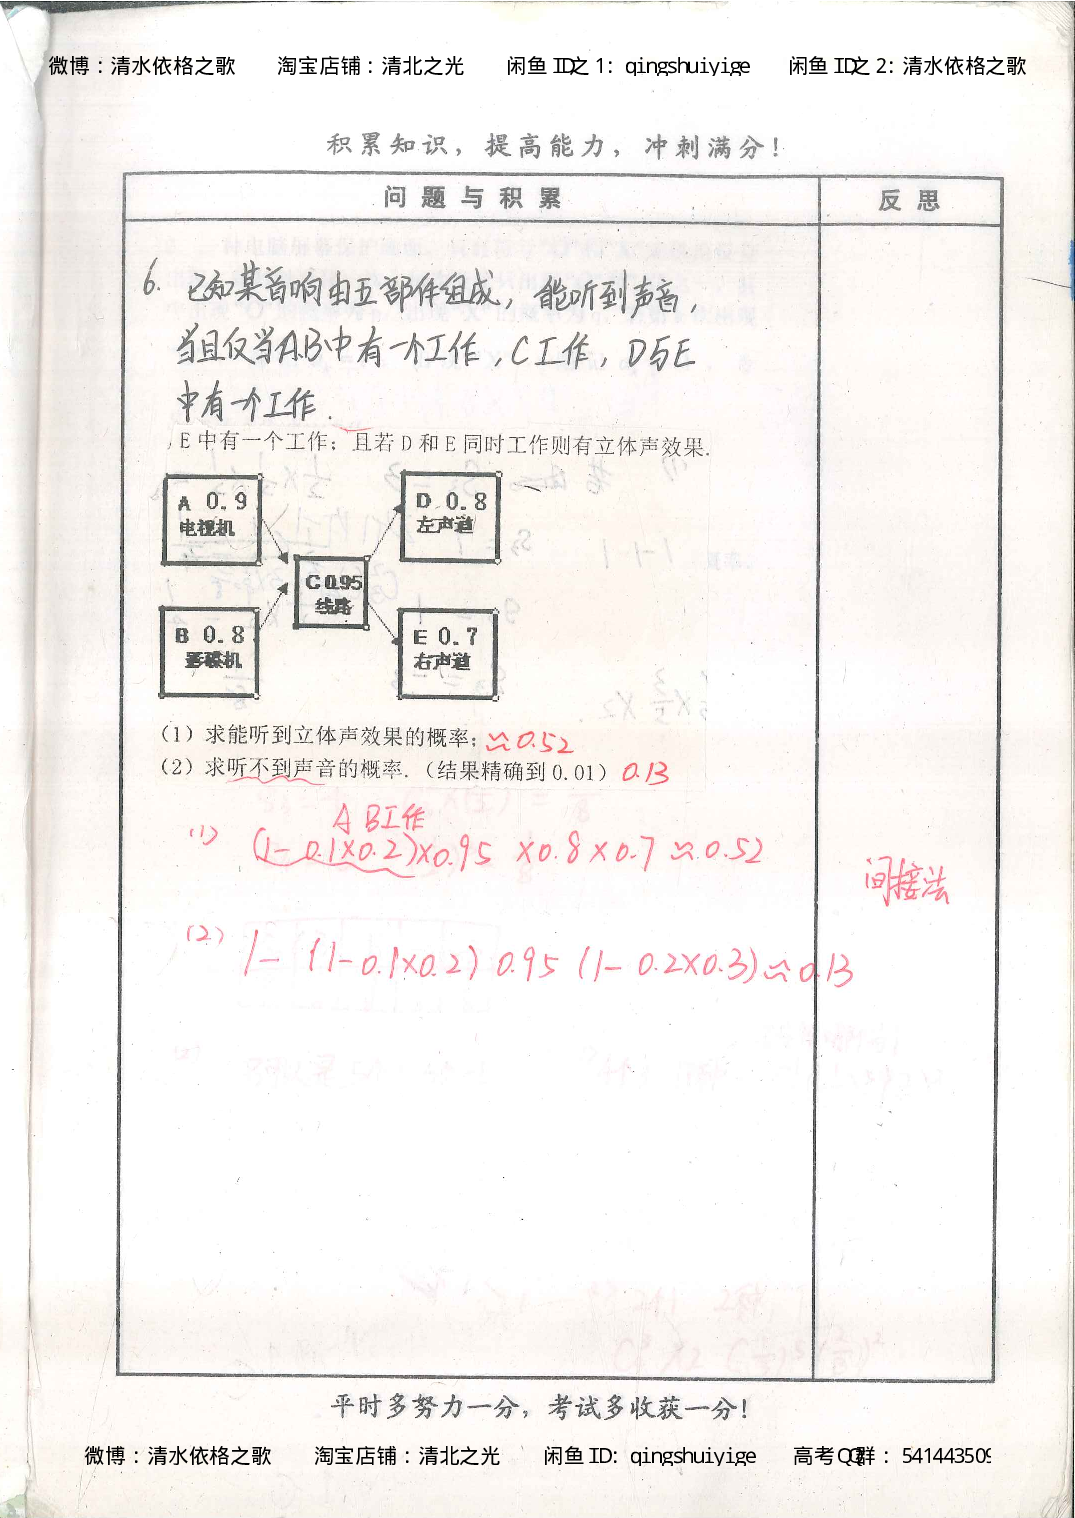 微博:清水依格之歌 淘宝店铺:清北之光 闲鱼ID之1: qingshuiyige 闲鱼ID之2:清水依格之歌
积累知识,提高能力,冲刺满分!
问题与积累 反思
6. 已知某音响由五部件组成,能听到声音,
当且仅当AB中有一个工作,C工作,D与E
中有一个工作.
,E中有一个工作;且若D和E同时工作则有立体声效果.
A 0.9 D 0.8
电视机 左声道
C 0.95
线路
B 0.8 E 0.7
影碟机 右声道
(1)求能听到立体声效果的概率; ≈0.52
(2)求听不到声音的概率.(结果精确到0.01) 0.13
AB工作
(1) (1-0.1×0.2)×0.95 ×0.8×0.7≈0.52
间接法
(2) 1-(1-0.1×0.2) 0.95 (1-0.2×0.3)≈0.13
平时多努力一分,考试多收获一分!
微博:清水依格之歌 淘宝店铺:清北之光 闲鱼ID: qingshuiyige 高考QQ群: 541443509